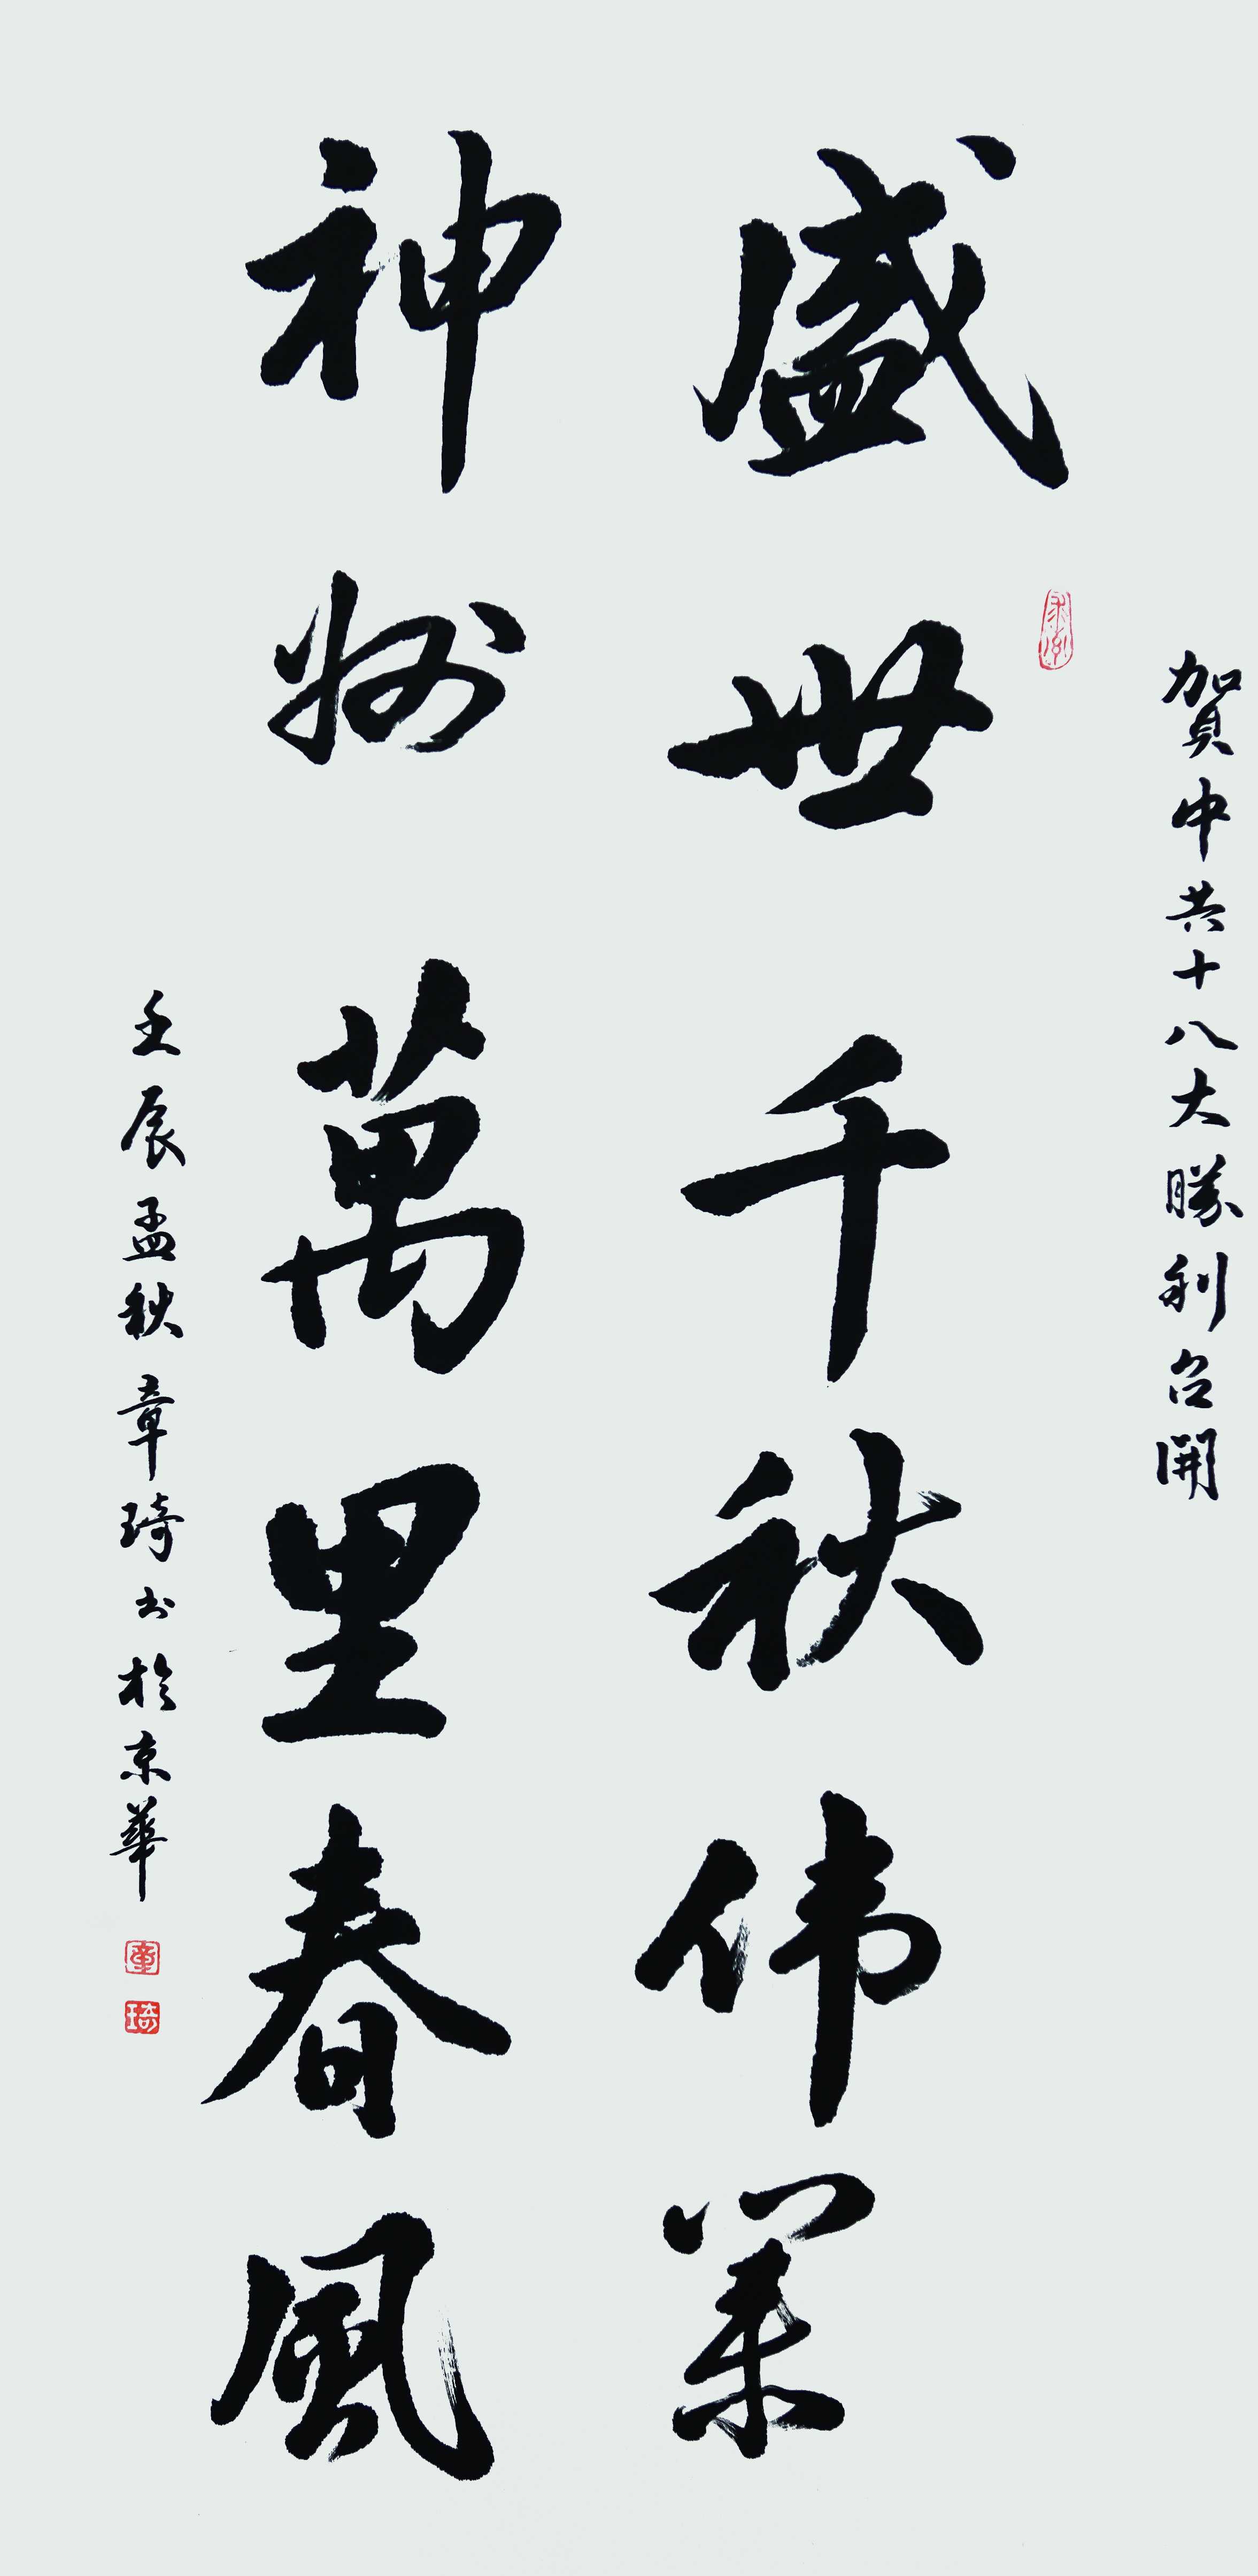 賀中共十八大勝利召開
盛世千秋伟業
神州萬里春風
壬辰孟秋章琦书於京華
章
琦